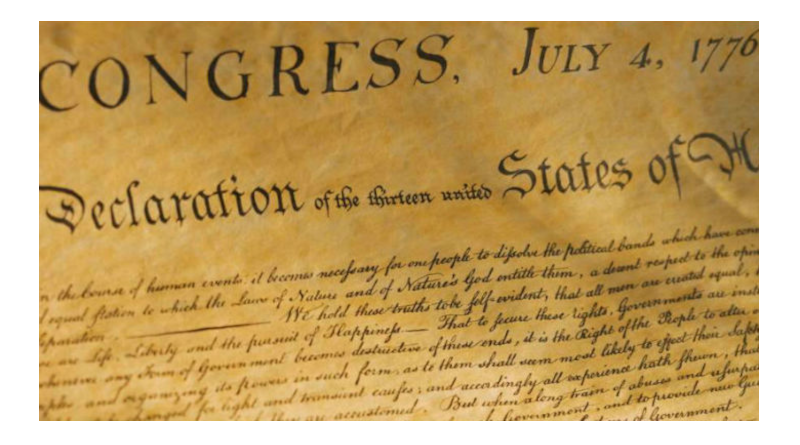 CONGRESS, JULY 4, 1776
Declaration of the thirteen united States of
the course of human events it becomes necessary for one people to dissolve the political bands which have
equal station to which the Laws of Nature and of Nature's God entitle them, a decent respect to the
We hold these truths to be self-evident, that all men are created equal,
are Life, Liberty and the pursuit of Happiness — That to secure these rights, Governments are
any Form of Government becomes destructive of these ends, it is the Right of the People to alter
and organizing its powers in such form, as to them shall seem most likely to effect their
for light and transient causes; and accordingly all experience hath shewn, that
are accustomed. But when a long train of abuses and
Government, and to provide new
of Government.